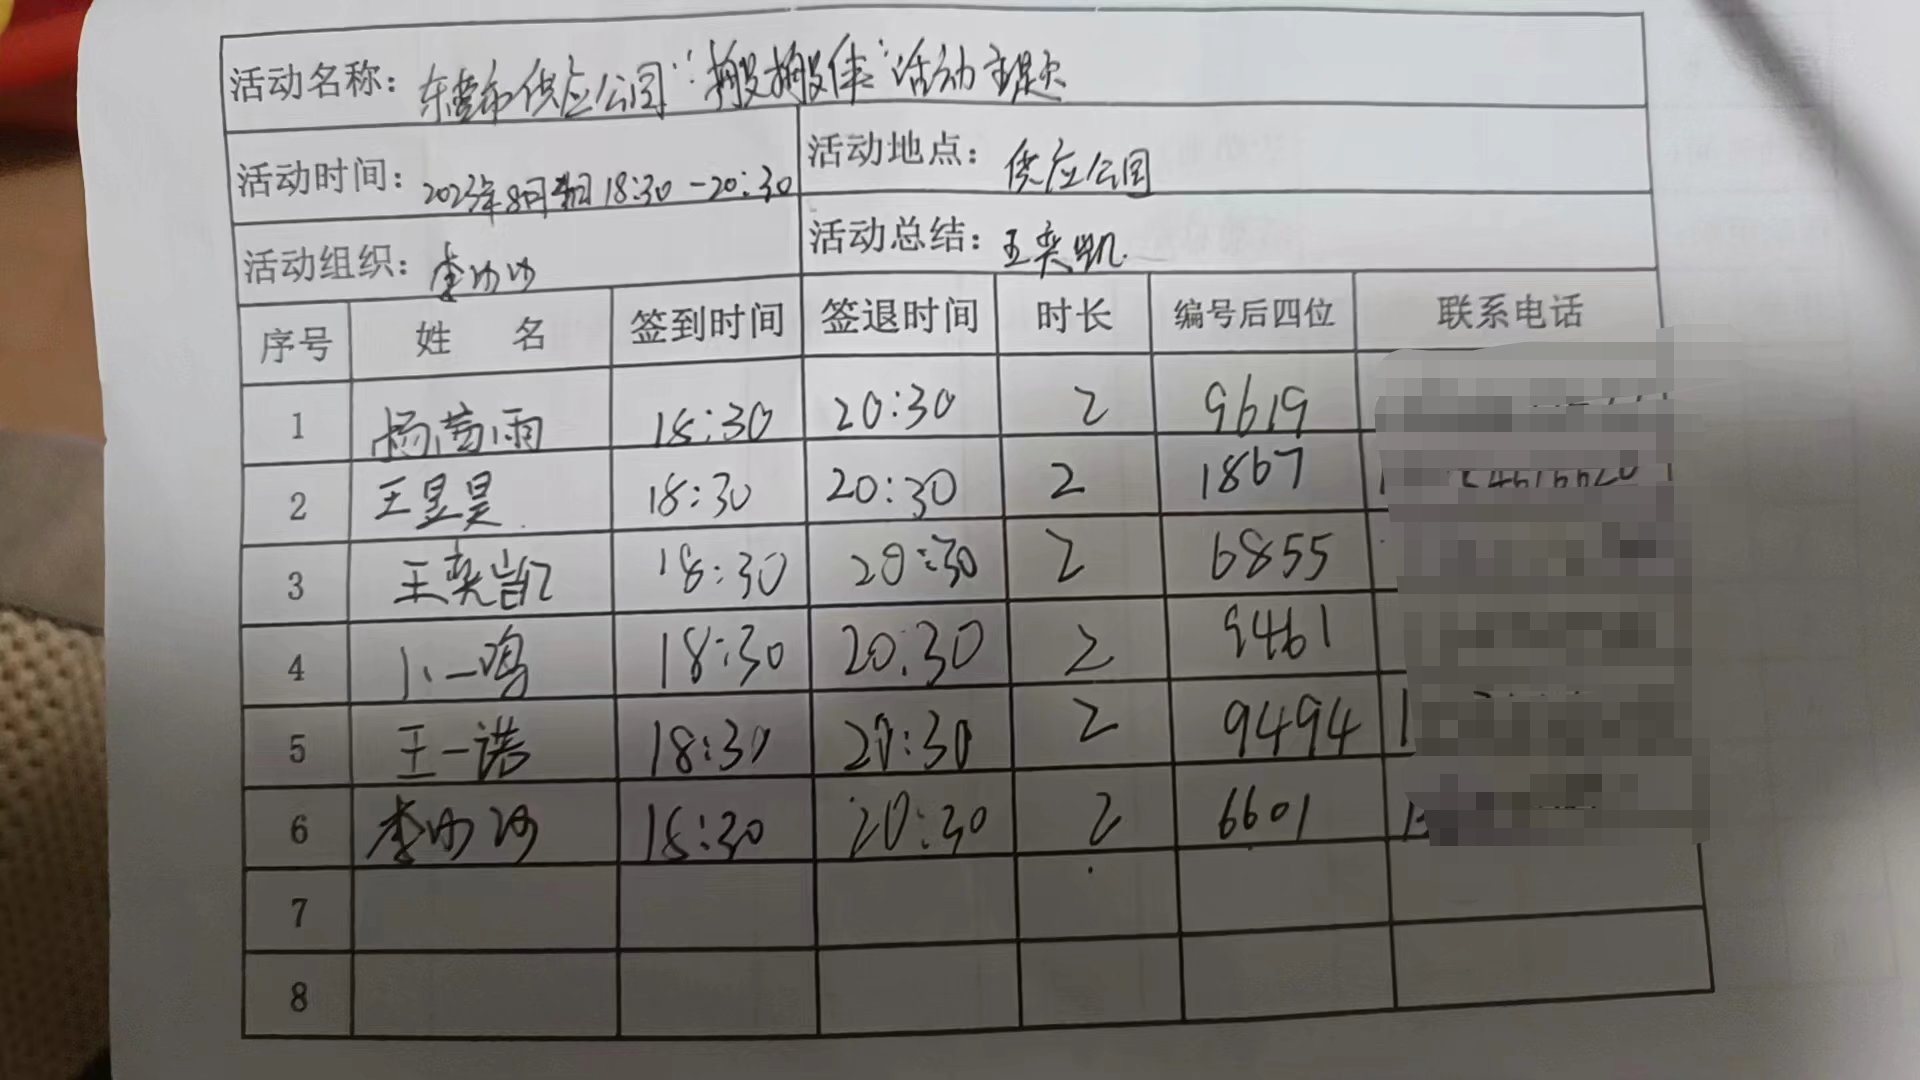 活动名称：东莞市供应公园“搬搬侠”活动主题
活动时间：2023年8月 日18:30-20:30 活动地点：供应公园
活动组织：李沙沙 活动总结：王奕凯
序号 姓 名 签到时间 签退时间 时长 编号后四位 联系电话
1 杨茜雨 18:30 20:30 2 9619
2 王昱昊 18:30 20:30 2 1867
3 王奕凯 18:30 20:30 2 6855
4 卜一鸣 18:30 20:30 2 9461
5 王一诺 18:30 20:30 2 9494
6 李沙沙 18:30 20:30 2 6601
7
8